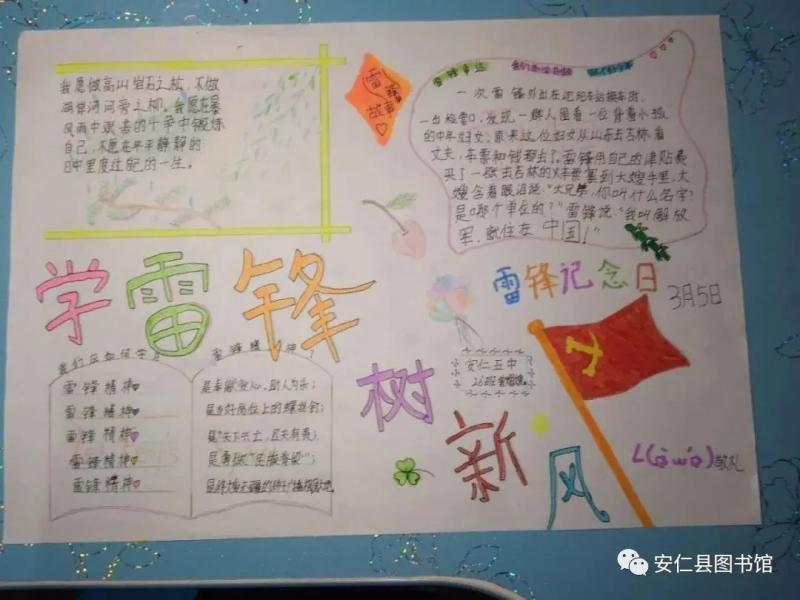 我愿做高山岩石之松，不做
湖岸河旁之柳。我愿在暴
风雨中艰苦的斗争中锻炼
自己，不愿在平平静静的
日中里度过自己的一生。
雷锋
故事
雷锋事迹
一次雷锋外出在沈阳车站换车时，
一出检票口，发现一群人围着一位背着小孩
的中年妇女，原来这位妇女从山东去吉林看
丈夫，车票和钱丢了。雷锋用自己的津贴费
买了一张去吉林的火车票塞到大嫂手里，大
嫂含着眼泪说："大兄弟，你叫什么名字?
是哪个单位的?"雷锋说"我叫解放
军，就住在中国!"
学雷锋
雷锋记念日
3月5日
树
新
风
安仁五中
我们应如何学习
雷锋精神
雷锋精神
雷锋精神
雷锋精神
雷锋精神
雷锋精神?
是奉献爱心，助人为乐;
敬礼
安仁县图书馆